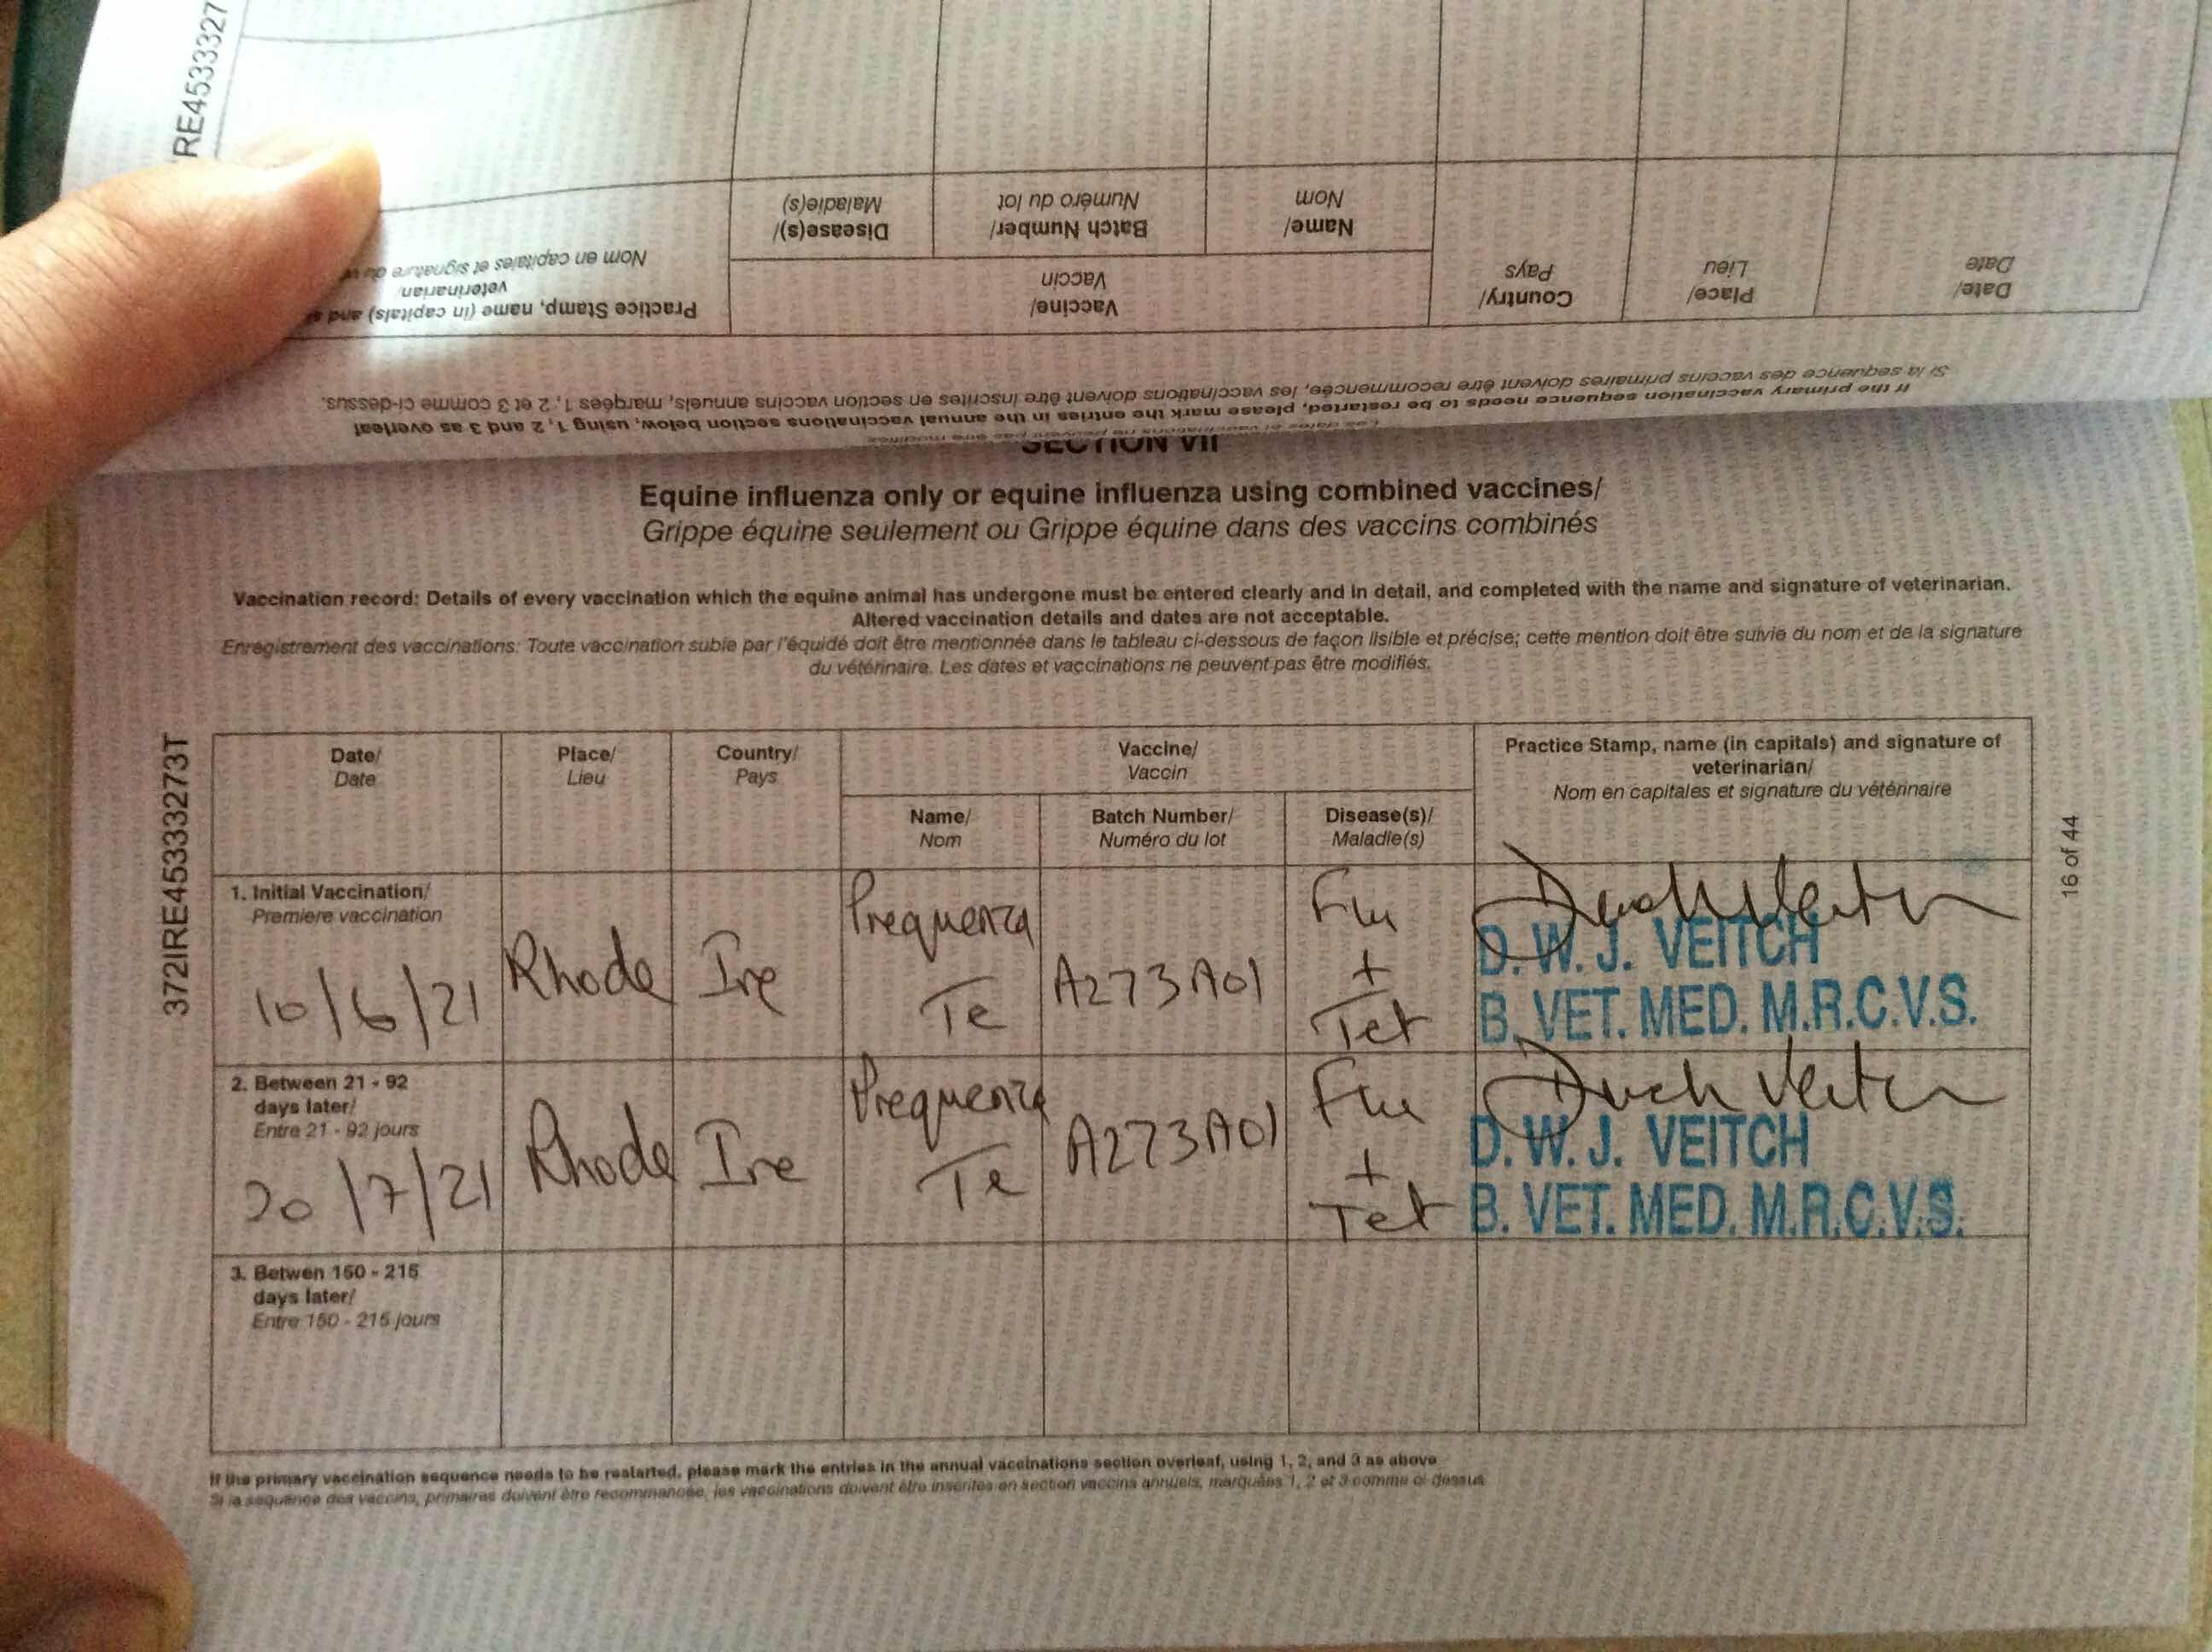 RE4533327
Practice Stamp, name (in capitals) and
veterinarian/
Nom en capitales et signature du
Disease(s)/
Maladie(s)
Batch Number/
Numéro du lot
Name/
Nom
Vaccine/
Vaccin
Country/
Pays
Place/
Lieu
Date/
Date
If the primary vaccination sequence needs to be restarted, please mark the entries in the annual vaccinations section below, using 1, 2 and 3 as overleaf
Si la sequence des vaccins primaires doivent être recommencée, les vaccinations doivent être inscrites en section vaccins annuels, marquées 1, 2 et 3 comme ci-dessus.
SECTION VII
Equine influenza only or equine influenza using combined vaccines/
Grippe équine seulement ou Grippe équine dans des vaccins combinés
Vaccination record: Details of every vaccination which the equine animal has undergone must be entered clearly and in detail, and completed with the name and signature of veterinarian.
Altered vaccination details and dates are not acceptable.
Enregistrement des vaccinations: Toute vaccination subie par l'équidé doit être mentionnée dans le tableau ci-dessous de façon lisible et précise; cette mention doit être suivie du nom et de la signature
du vétérinaire. Les dates et vaccinations ne peuvent pas être modifiés.
372IRE45333273T
Date/
Date
Place/
Lieu
Country/
Pays
Vaccine/
Vaccin
Name/
Nom
Batch Number/
Numéro du lot
Disease(s)/
Maladie(s)
Practice Stamp, name (in capitals) and signature of
veterinarian/
Nom en capitales et signature du vétérinaire
1. Initial Vaccination/
Premiere vaccination
10/6/21
Rhode
Ire
Prequenza
Te
A273A01
Flu
+
Tet
D. W. J. VEITCH
B. VET. MED. M.R.C.V.S.
2. Between 21 - 92
days later/
Entre 21 - 92 jours
20/7/21
Rhode
Ire
Prequenza
Te
A273A01
Flu
+
Tet
D. W. J. VEITCH
B. VET. MED. M.R.C.V.S.
3. Betwen 150 - 215
days later/
Entre 150 - 215 jours
16 of 44
If the primary vaccination sequence needs to be restarted, please mark the entries in the annual vaccinations section overleaf, using 1, 2, and 3 as above
Si la sequence des vaccins, primaires doivent être recommancée, les vaccinations doivent être inscrites en section vaccins annuels, marquées 1, 2 et 3 comme ci-dessus